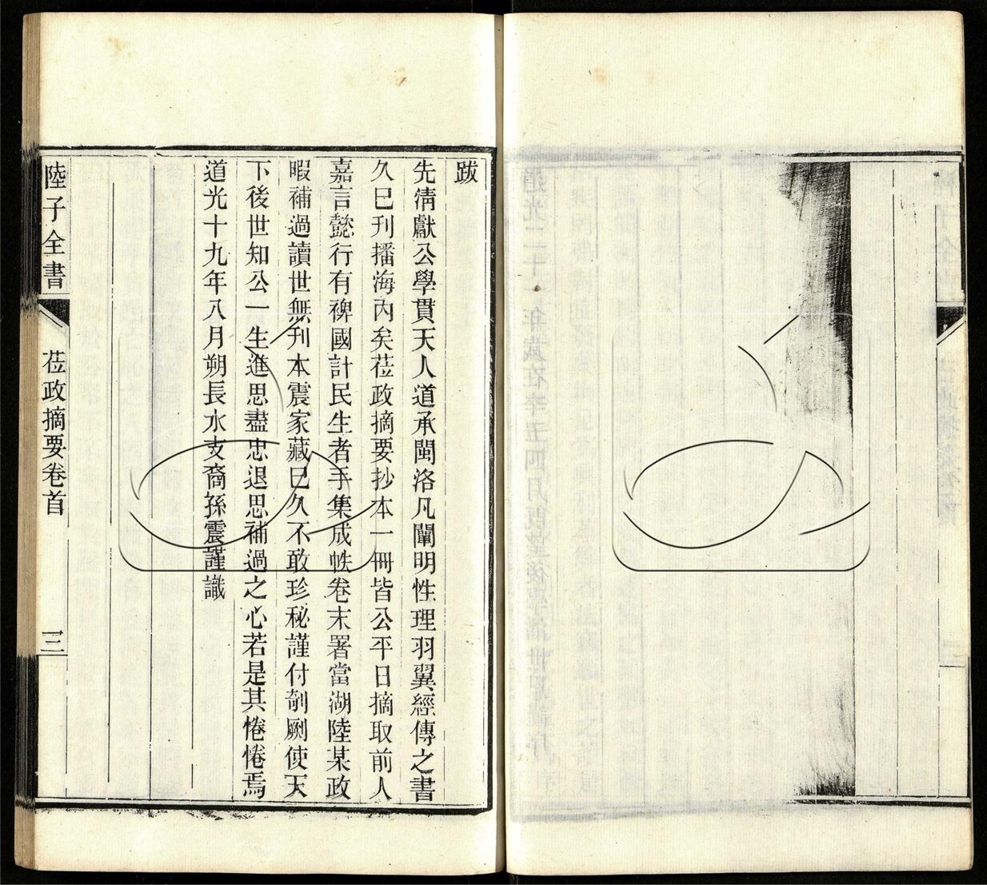 跋
先清獻公學貫天人道承閩洛凡闡明性理羽翼經傳之書
久已刊播海內矣莅政摘要抄本一冊皆公平日摘取前人
嘉言懿行有裨國計民生者手集成帙卷末署當湖陸某政
暇補過讀世無刋本震家藏已久不敢珍秘謹付剞劂使天
下後世知公一生進思盡忠退思補過之心若是其惓惓焉
道光十九年八月朔長水支裔孫震謹識
陸子全書
莅政摘要卷首
三